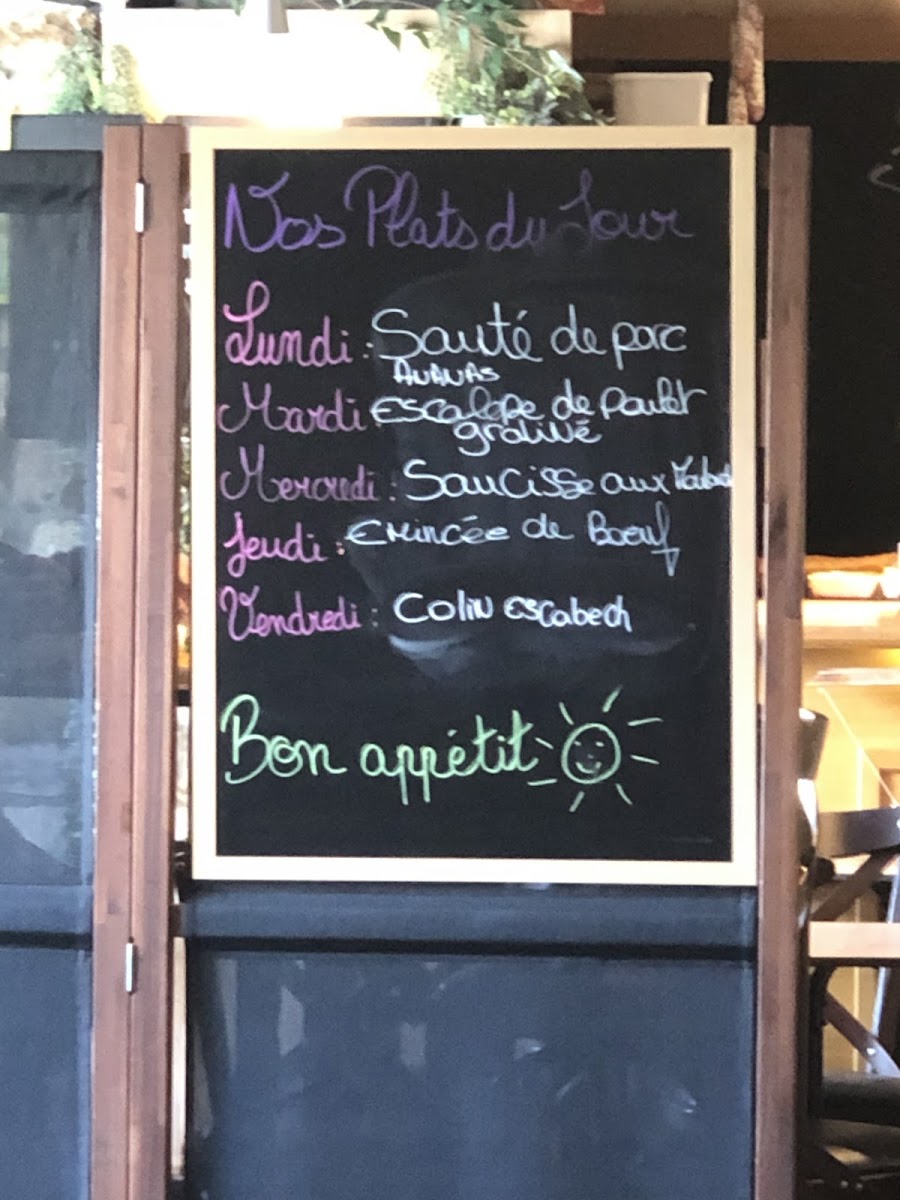 Nos Plats du Jour
Lundi : Sauté de porc
ANANAS
Mardi Escalope de Poulet
gratiné
Mercredi : Saucisse aux
Jeudi : Emincée de Boeuf
Vendredi : Colin escabech
Bon appétit